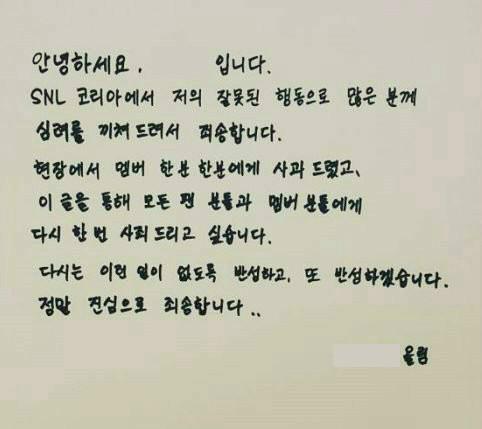 안녕하세요. 입니다.
SNL 코리아에서 저의 잘못된 행동으로 많은 분께
심려를 끼쳐드려서 죄송합니다.
현장에서 멤버 한분 한분에게 사과 드렸고,
이 글을 통해 모든 팬 분들과 멤버 분들에게
다시 한 번 사죄드리고 싶습니다.
다시는 이런 일이 없도록 반성하고, 또 반성하겠습니다.
정말 진심으로 죄송합니다..
올림